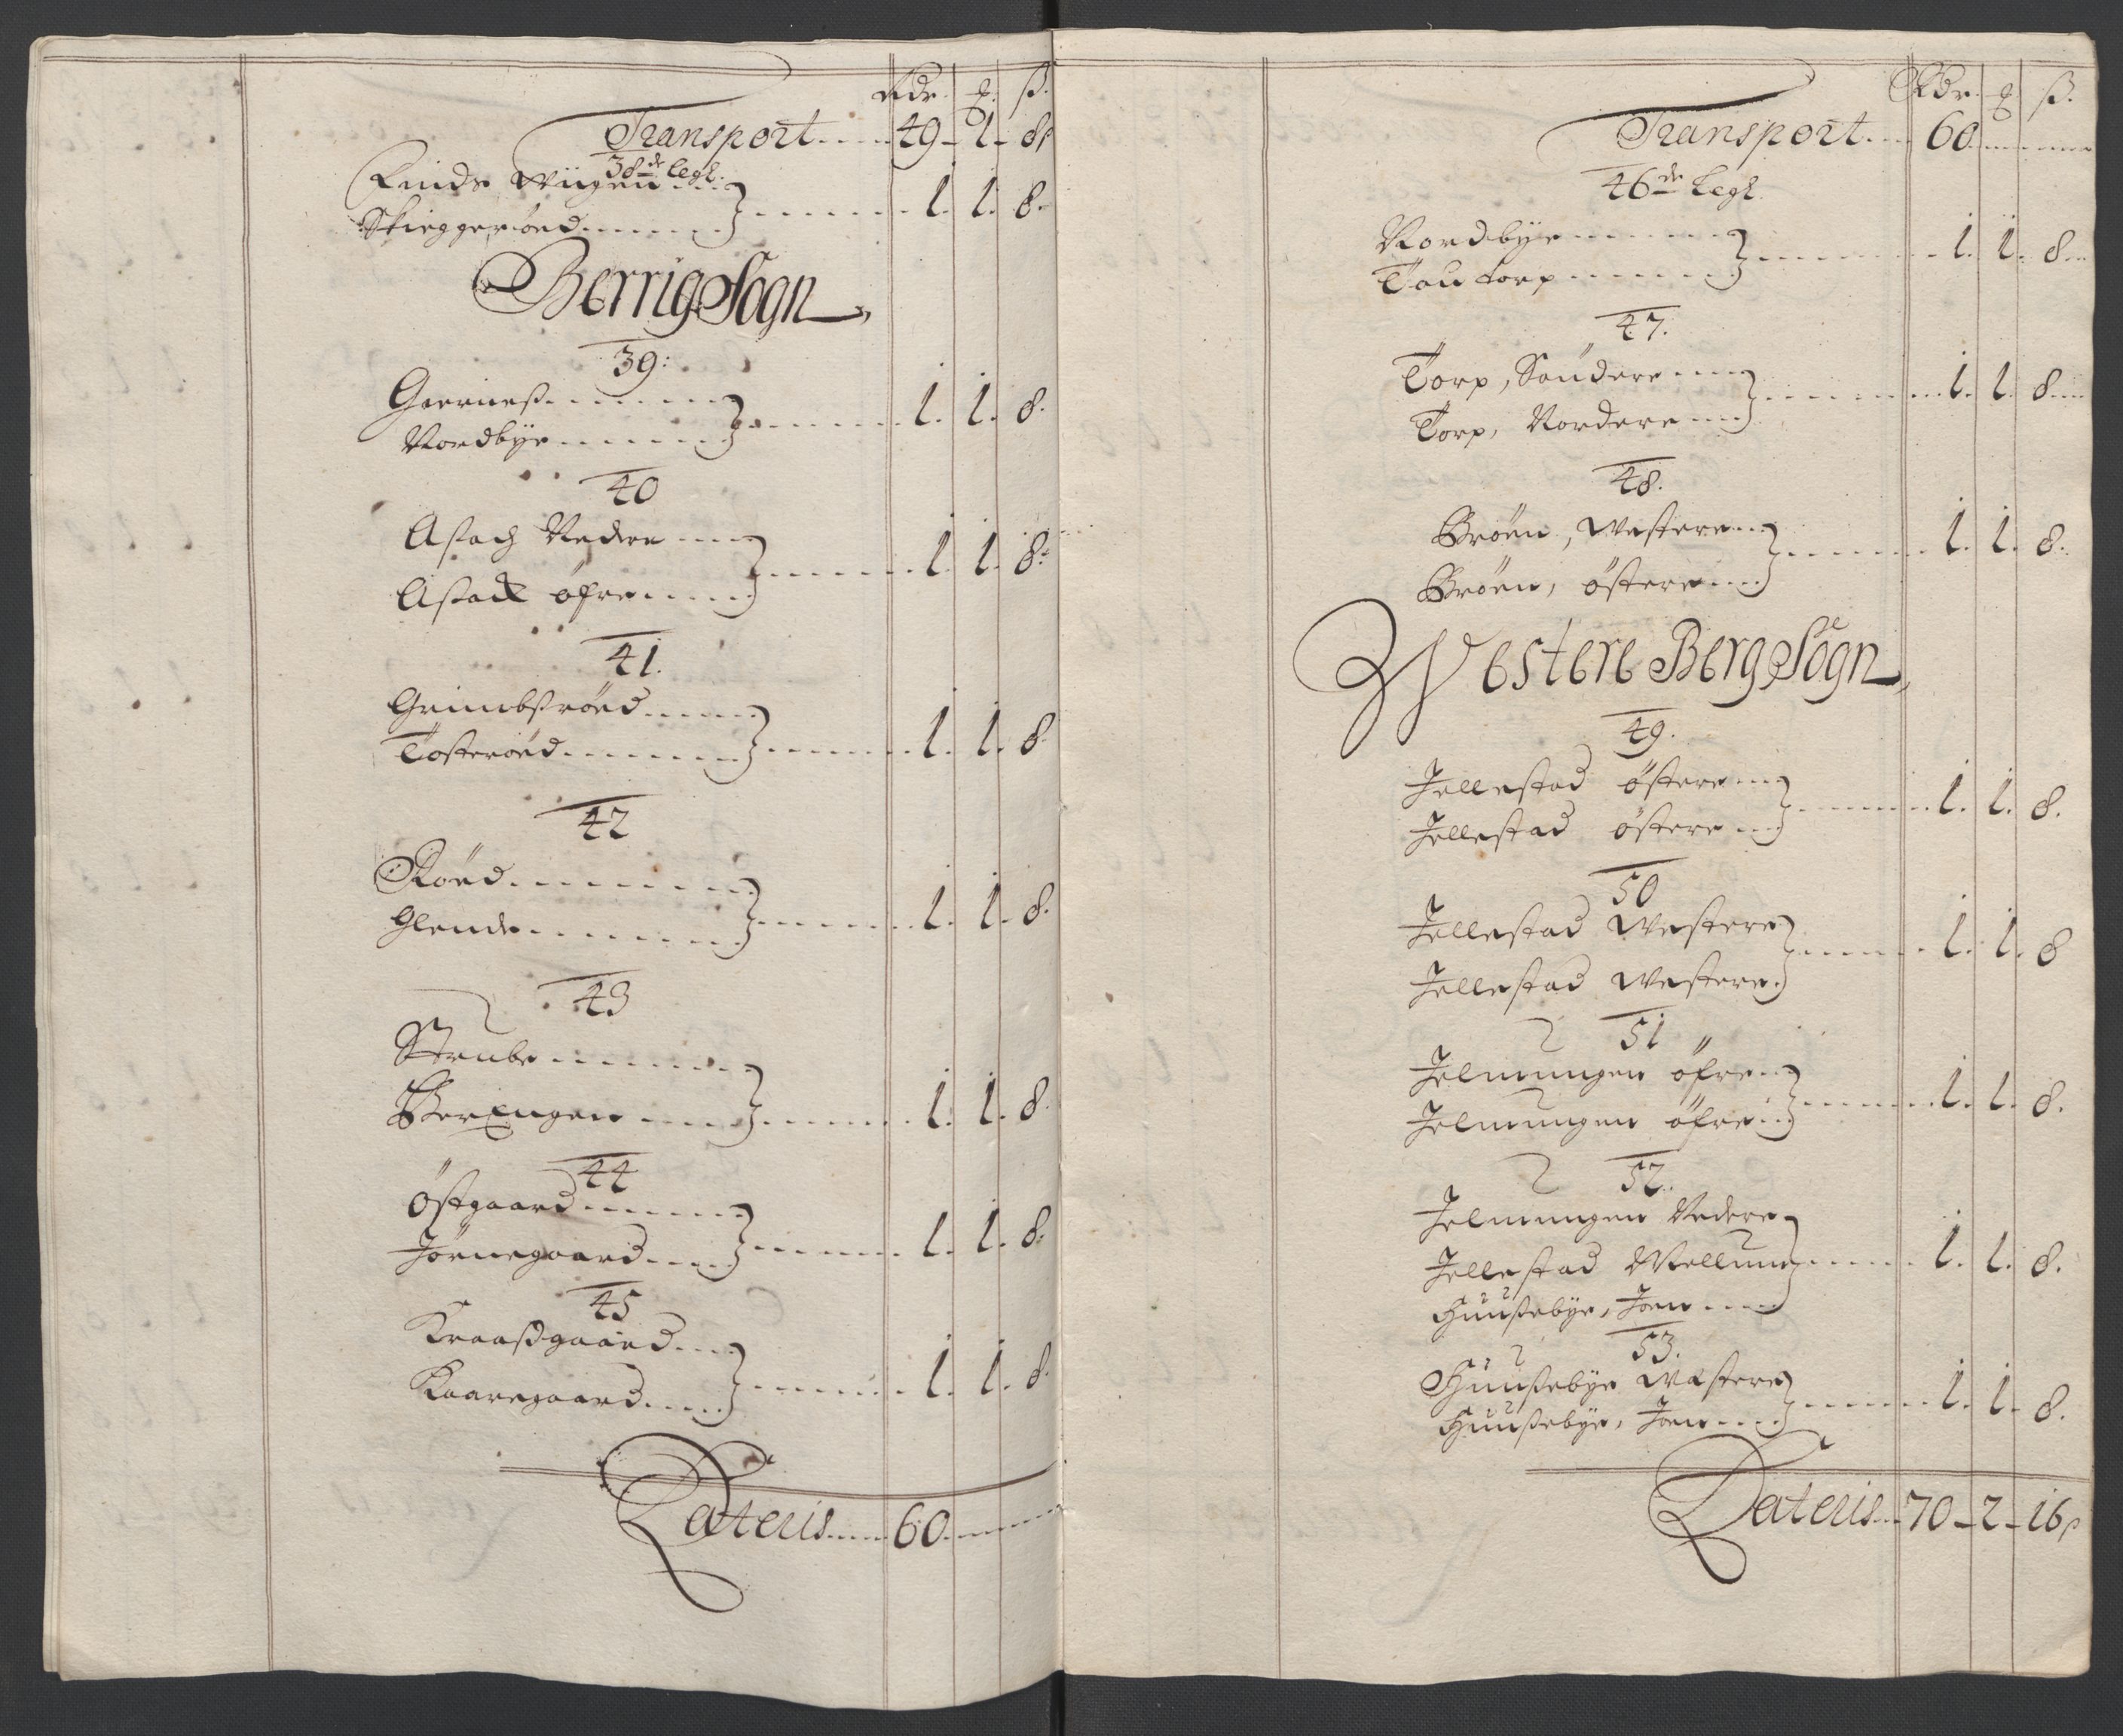 Rdr. q. ß.
Transport..... 49 - 1 - 8ß
38de Legl.
Linds Wiigen....
Skieggerröed....... 1. 1. 8.
Berrig Sogn
39:
Gaernes.......
Nordbÿe....... 1. 1. 8.
40
Asach Nedre....
Asack öfre..... 1. 1. 8.
41.
Grimbsröed......
Tosteröed....... 1. 1. 8.
42
Röed.......
Glende....... 1. 1. 8.
43
Strube.......
BerEngen..... 1. 1. 8.
44
Östgaard......
Jörnegaard.... 1. 1. 8.
45
Kraaßgaard....
Kaaregaard..... 1. 1. 8.
Lateris..... 60.
Rdr. q ß.
Transport.... 60.
46de Legl.
Nordbÿe......
Tautorp...... 1. 1. 8.
47.
Torp, Söndere....
Torp, Nordere.... 1. 1. 8.
48.
Bröen, Westere...
Bröen, östere.... 1. 1. 8.
Westere Berg Sogn
49.
Jellestad östere...
Jellestad östere... 1. 1. 8.
50
Jellestad Westere
Jellestad Westere. 1. 1. 8
51
Jelmungen öfre...
Jelmungen öfre... 1. 1. 8.
52.
Jelmungen Nedere
Jellestad Mellum 1. 1. 8.
Huusebÿe, Joen....
53.
Huusebÿe Westere
Huusebÿe, Joen.... 1. 1. 8.
Lateris... 70 - 2 - 16ß